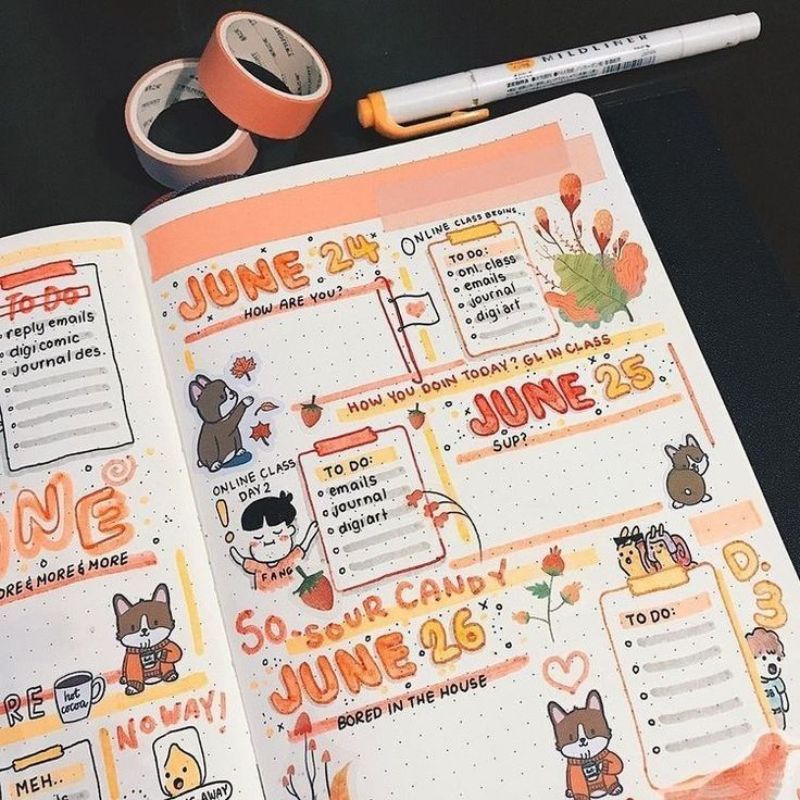 MILDLINER
ZEBRA
To Do
reply emails
digi comic
journal des.
NE
ORE & MORE & MORE
RE
hot cocoa
NO WAY!
MEH..
AWAY
JUNE 24
HOW ARE YOU?
ONLINE CLASS BEGINS
TO DO:
onl. class
emails
journal
digi art
HOW YOU DOIN TODAY? GL IN CLASS
JUNE 25
SUP?
ONLINE CLASS
DAY 2
FANG
TO DO:
emails
journal
digi art
SO-SOUR CANDY
JUNE 26
BORED IN THE HOUSE
TO DO:
D.
3